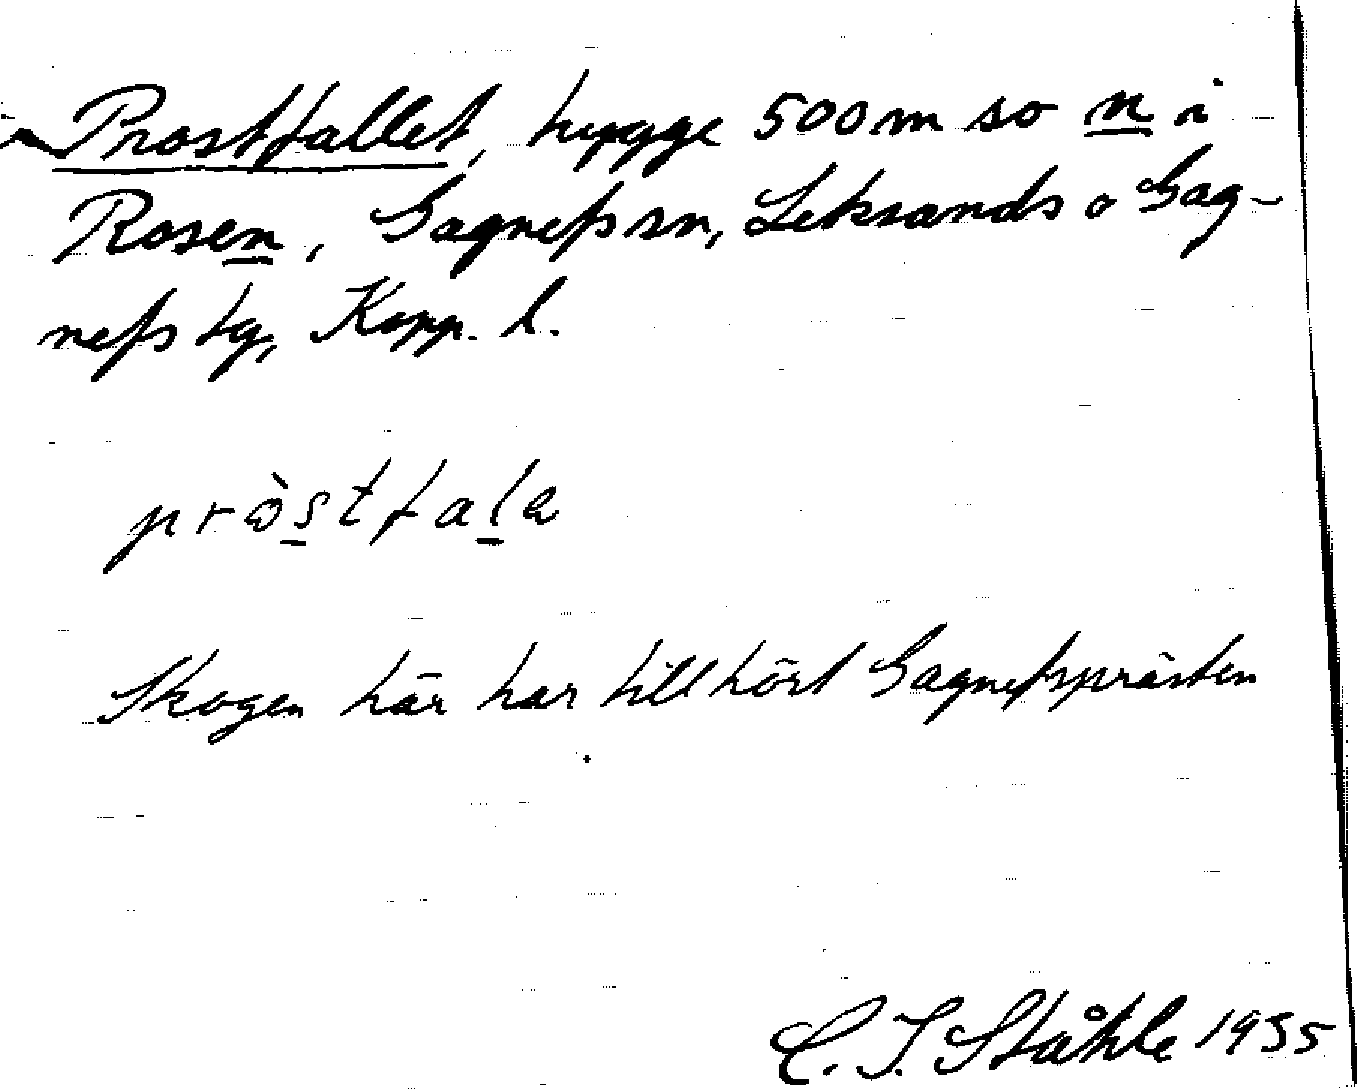 Prostfallet, hygge 500 m so n i
Rosen, Gagnefs sn, Leksands o Gag-
nefs tg, Kopp. l.
pròstfala
Skogen här har tillhört Gagnefsprästen
C. I. Ståhle 1935